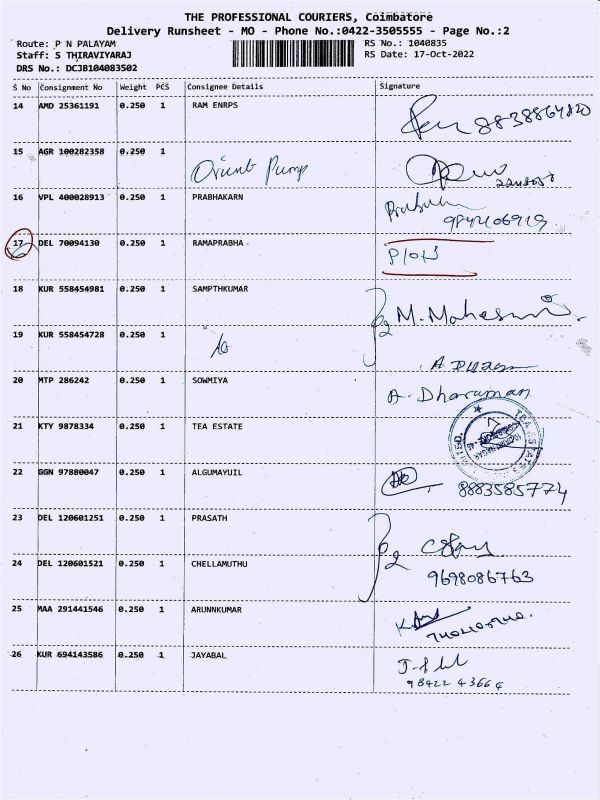 THE PROFESSIONAL COURIERS, Coimbatore
Delivery Runsheet - MO - Phone No.:0422-3505555 - Page No.:2
Route: P N PALAYAM RS No.: 1040835
Staff: S THIRAVIYARAJ RS Date: 17-Oct-2022
DRS No.: DCJB104083502
S No Consignment No Weight PCS Consignee Details Signature
14 AMD 25361191 0.250 1 RAM ENRPS 8838864820
15 AGR 100282358 0.250 1 Orient Pump
16 VPL 400028913 0.250 1 PRABHAKARN
17 DEL 70094130 0.250 1 RAMAPRABHA
18 KUR 558454981 0.250 1 SAMPTHKUMAR M. Maheswari
19 KUR 558454728 0.250 1
20 MTP 286242 0.250 1 SOWMIYA A. Dharuman
21 KTY 9878334 0.250 1 TEA ESTATE
22 GGN 97880047 0.250 1 ALGUMAYUIL 8883585774
23 DEL 120601251 0.250 1 PRASATH
24 DEL 120601521 0.250 1 CHELLAMUTHU 9698086763
25 MAA 291441546 0.250 1 ARUNNKUMAR
26 KUR 694143586 0.250 1 JAYABAL
98422 43664